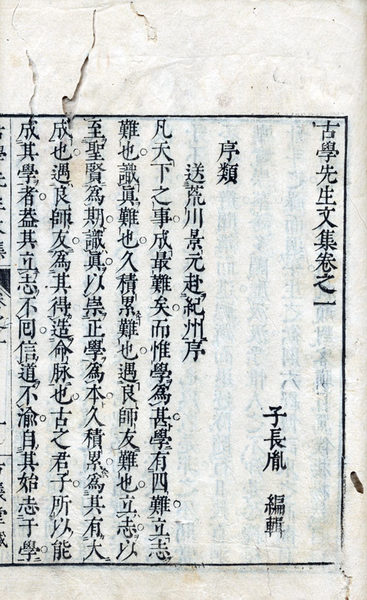 古學先生文集卷之一
子長胤　編輯
序類
送荒川景元赴紀州序
凡天下之事成最難矣而惟學爲甚學有四難立志
難也識眞難也久積累難也遇良師友難也立志以
至聖賢爲期識眞以崇正學爲本久積累爲其有大
成也遇良師友爲其得造命脉也古之君子所以能
成其學者葢其立志不回信道不渝自其始志于學